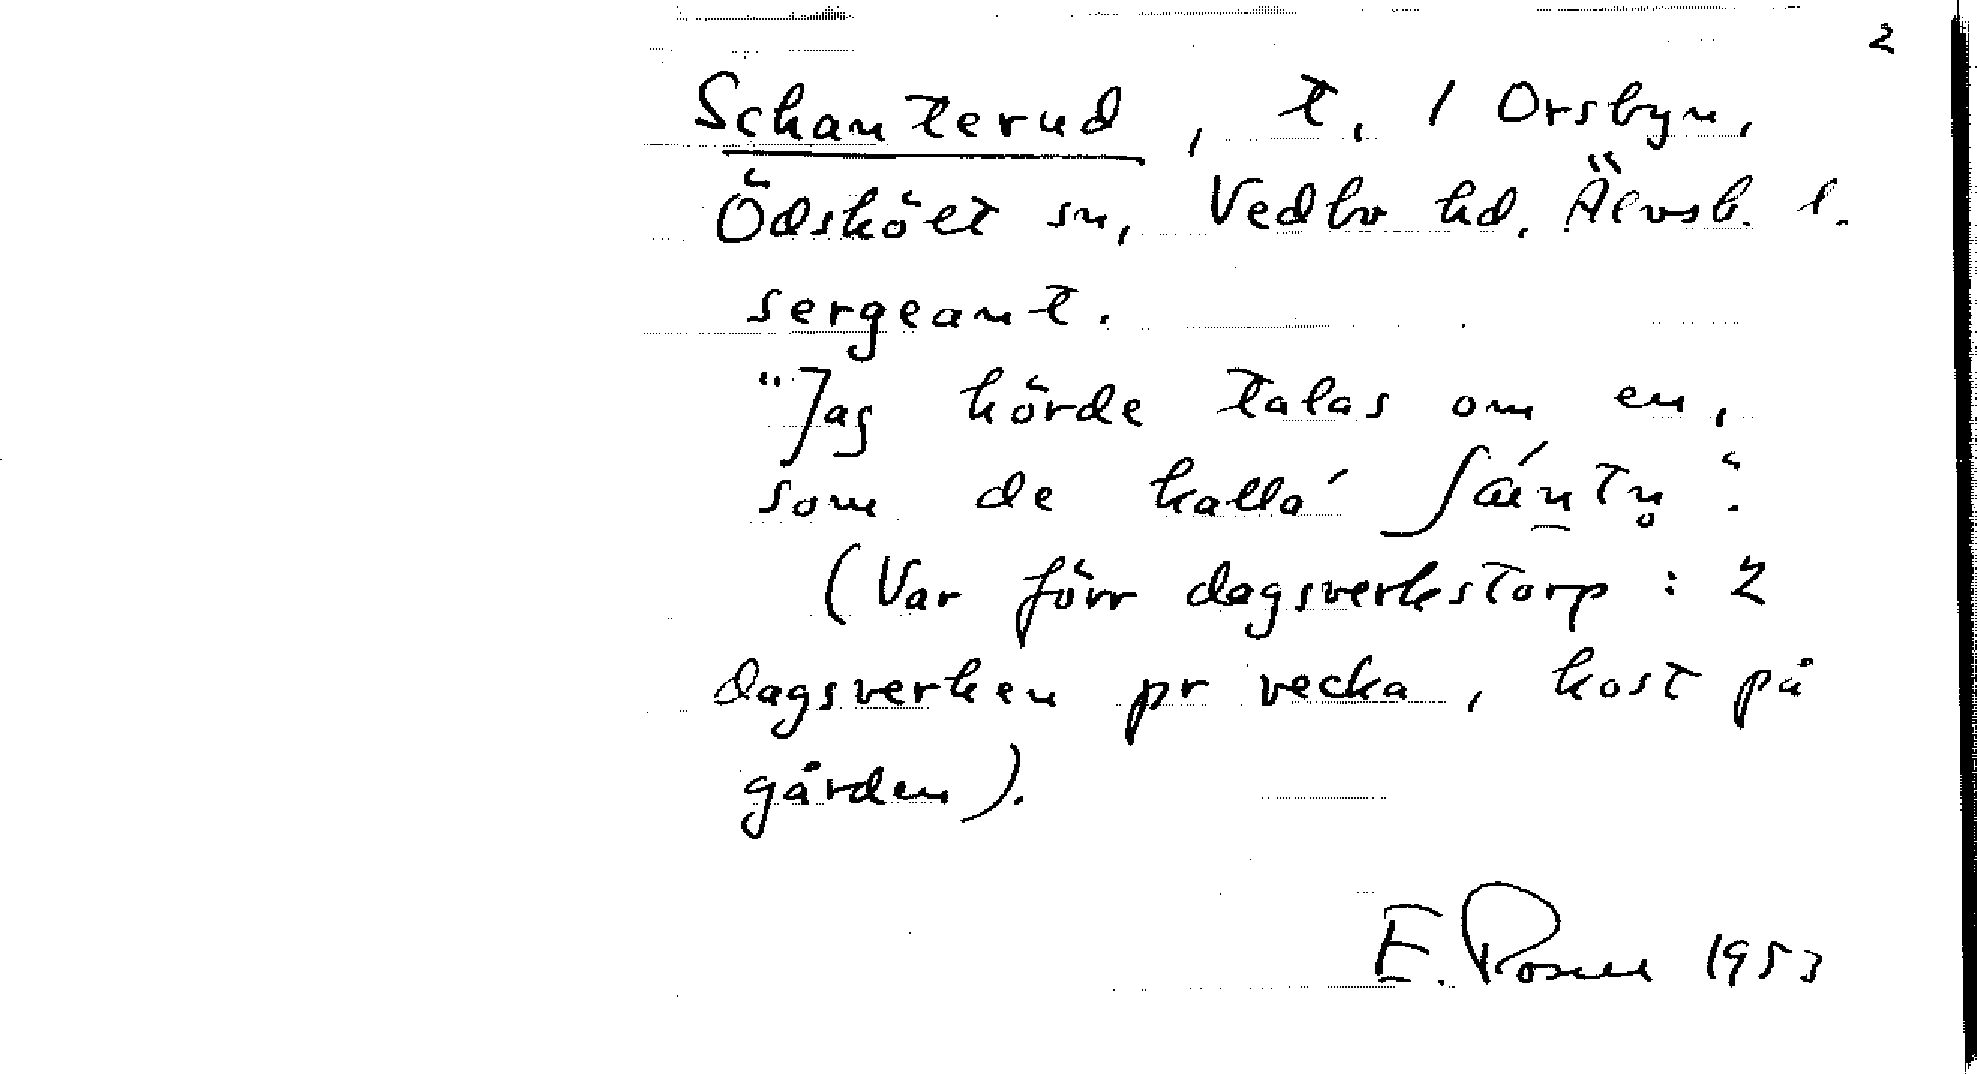 2
Schanterud, t, / Orsbyn,
Ödskölt sn, Vedbo hd. Älvsb. l.
sergeant.
"Jag hörde talas om en,
som de kalla'
(Var förr dagsverkstorp: 2
dagsverken pr vecka, kost på
gården).
E. Rosell 1953